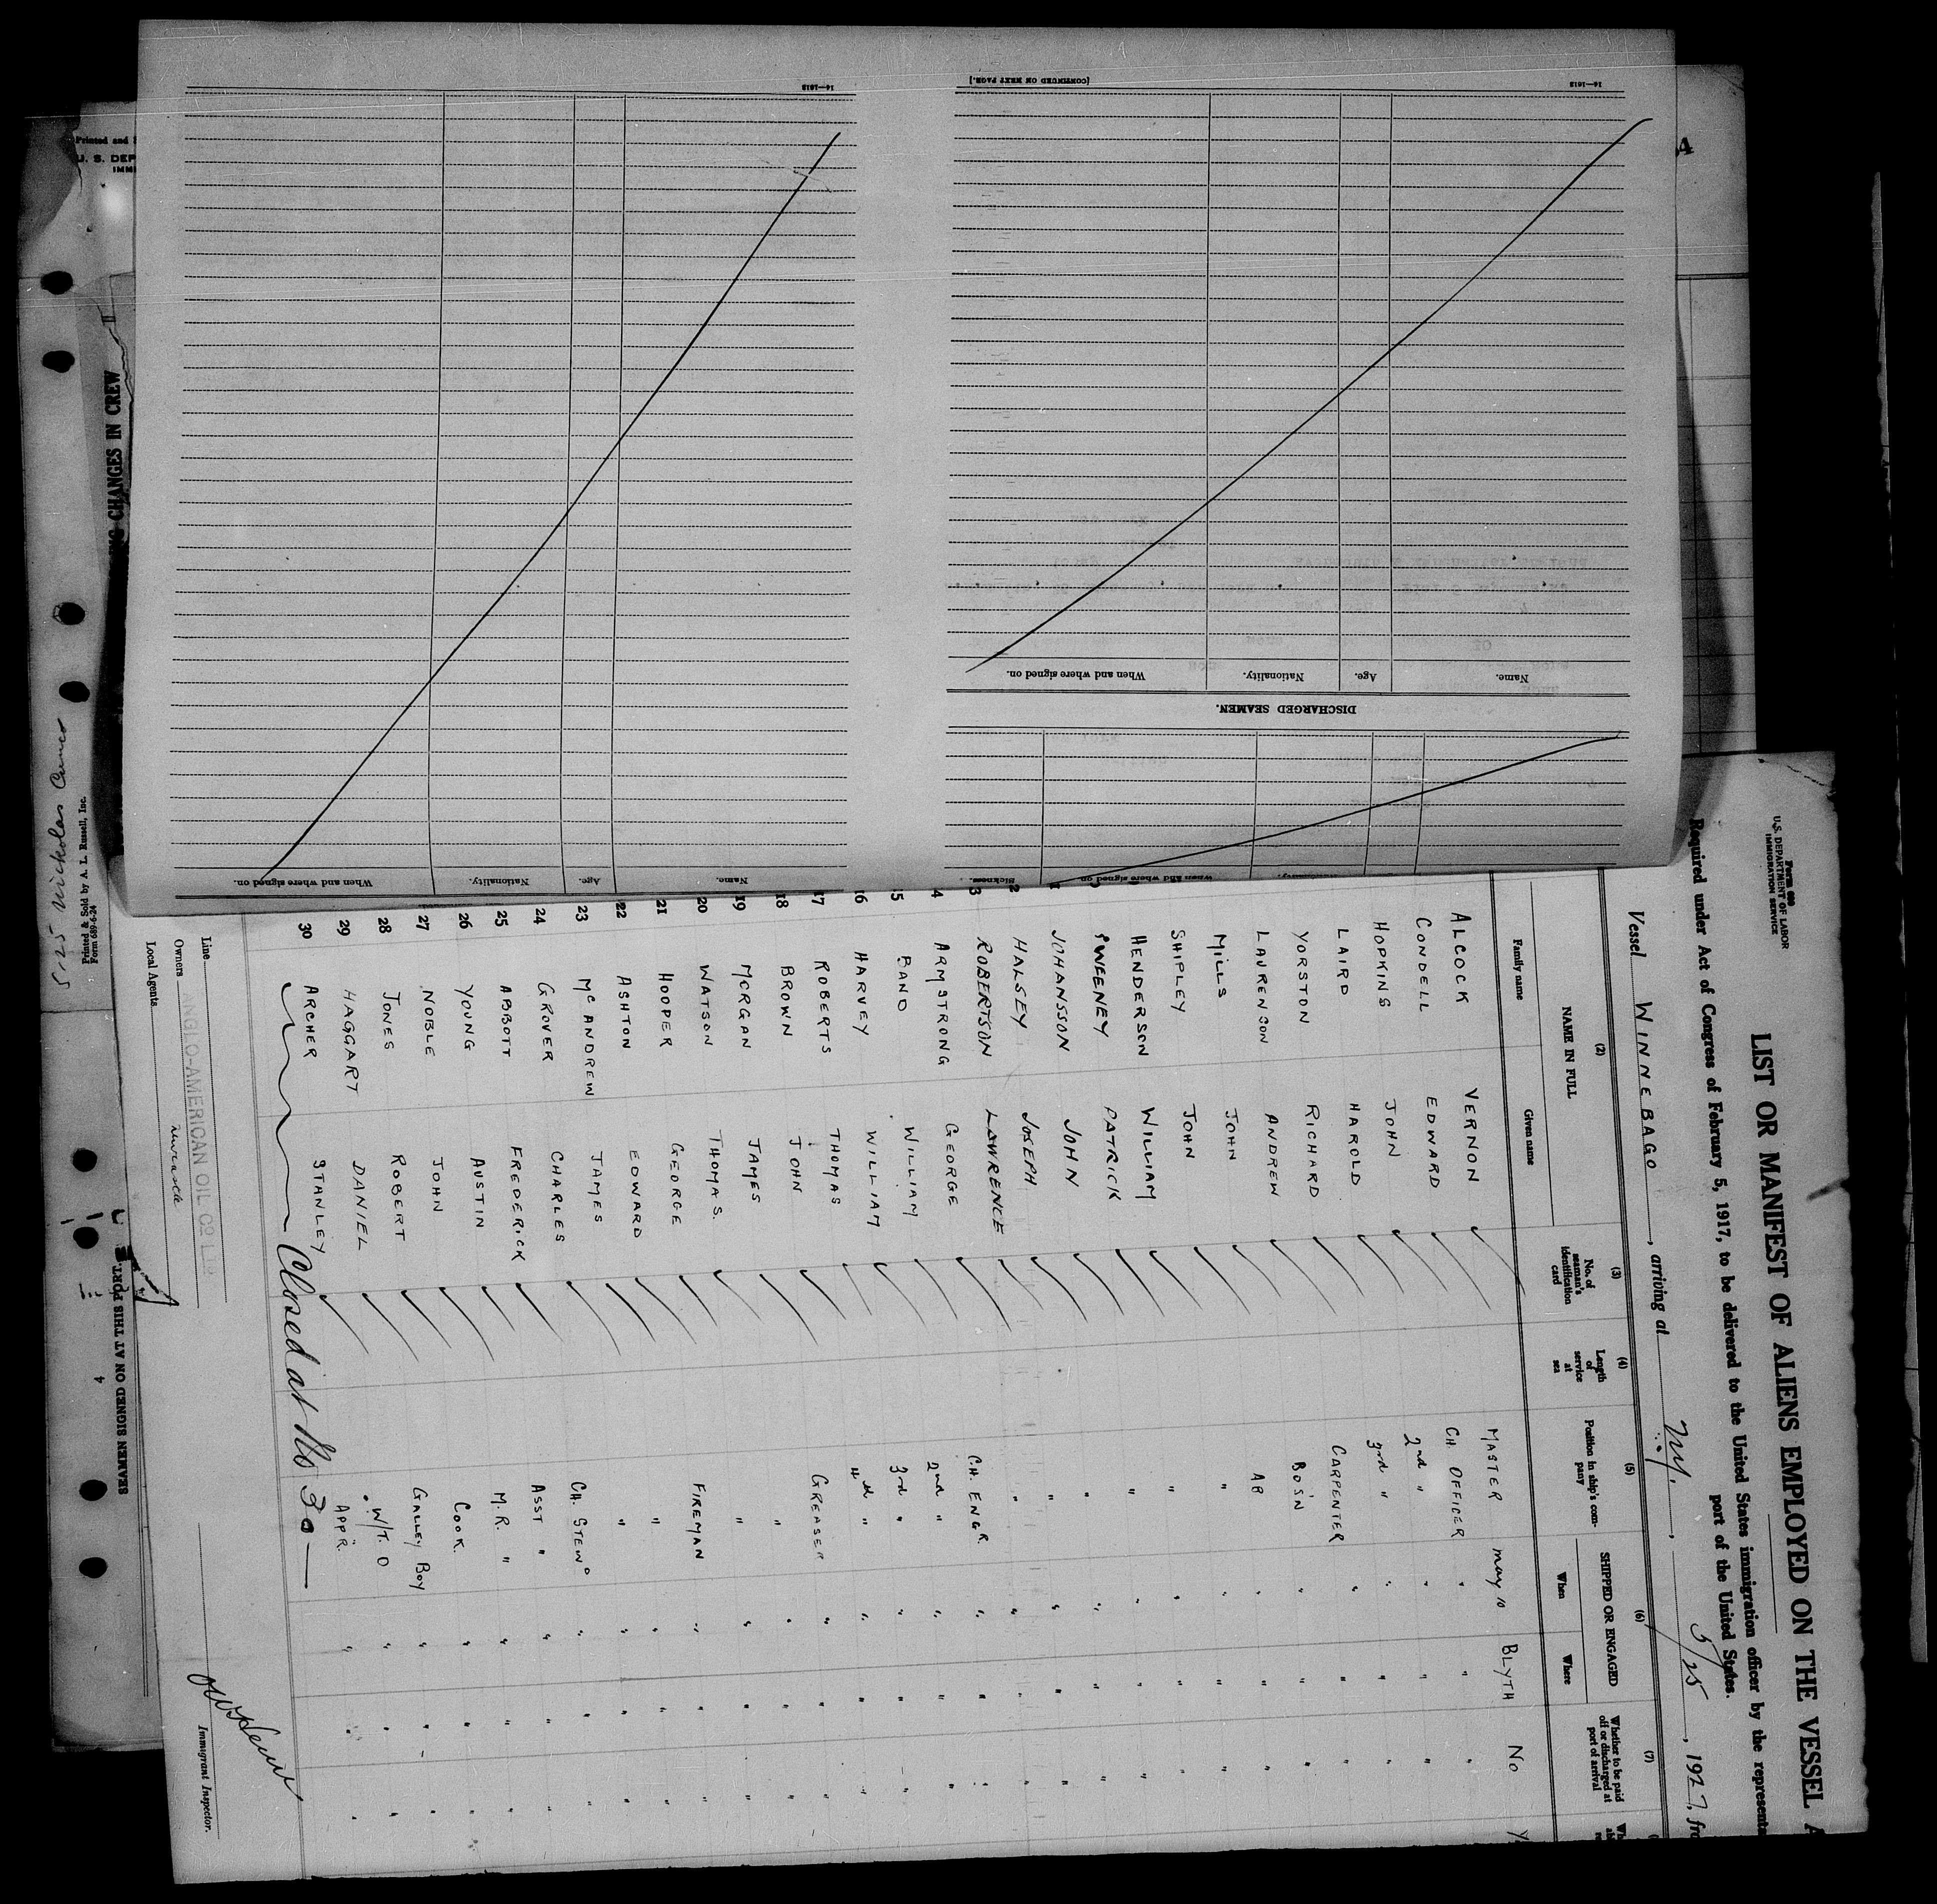 Form 689
U.S. DEPARTMENT OF LABOR
IMMIGRATION SERVICE
LIST OR MANIFEST OF ALIENS EMPLOYED ON THE VESSEL
Required under Act of Congress of February 5, 1917, to be delivered to the United States immigration officer by the
port of the United States.
Vessel WINNEBAGO, arriving at N.Y., 5/25, 1927,
(2) (3) (4) (5) (6) (7)
NAME IN FULL
Family name Given name
No. of seaman's identification card
Length of service at sea
Position in ship's company
SHIPPED OR ENGAGED
When Where
Whether to be paid off or discharged at port of arrival
ALCOCK VERNON MASTER May 10 BLYTH No
CONDELL EDWARD CH. OFFICER " " "
HOPKINS JOHN 2nd " " " "
LAIRD HAROLD 3rd " " " "
YORSTON RICHARD CARPENTER " " "
LAURENSON ANDREW BO'SN " " "
MILLS JOHN AB " " "
SHIPLEY JOHN " " " "
HENDERSON WILLIAM " " " "
SWEENEY PATRICK " " " "
JOHANSSON JOHN " " " "
2 HALSEY JOSEPH " " " "
3 ROBERTSON LAWRENCE " " " "
4 ARMSTRONG GEORGE CH. ENGR. " " "
15 BAND WILLIAM 2nd " " " "
16 HARVEY WILLIAM 3rd " " " "
17 ROBERTS THOMAS 4th " " " "
18 BROWN JOHN GREASER " " "
19 MORGAN JAMES " " " "
20 WATSON THOMAS. " " " "
21 HOOPER GEORGE FIREMAN " " "
22 ASHTON EDWARD " " " "
23 McANDREW JAMES " " " "
24 GROVER CHARLES CH. STEWD " " "
25 ABBOTT FREDERICK ASST " " " "
26 YOUNG AUSTIN M.R. " " " "
27 NOBLE JOHN COOK. " " "
28 JONES ROBERT GALLEY BOY " " "
29 HAGGART DANIEL W/T. O " " "
30 ARCHER STANLEY APP'R. " " "
Closed at No 30
Line
Owners ANGLO-AMERICAN OIL CO LTD
Local Agents
Immigrant Inspector.
[CONTINUED ON NEXT PAGE.]
14—1618
14—1618
DISCHARGED SEAMEN.
Name. Age. Nationality. When and where signed on.
Name. Age. Nationality. When and where signed on.
Nationality. When and where signed on Sickness.
Printed and
U. S. DEP
IMMI
NG CHANGES IN CREW
5-25 Nickolas
Printed & Sold by A. L. Russell, Inc.
Form 689-6-24
4
SEAMEN SIGNED ON AT THIS PORT.